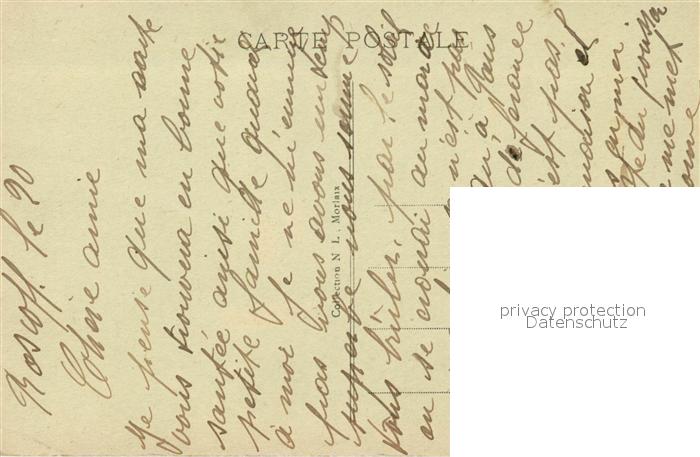 CARTE POSTALE
Collection N. L., Morlaix
Roscoff le 20
Chère amie
Je pense que ma carte
vous trouvera en bonne
santée ainsi que votre
petite famille quand
à moi je ne m'ennuie
pas nous avons un temps
superbe nous sommes
tous brûlés par le soleil
on se croirait au maroc
n'est pas
qu'à Paris
de france
est pas
et
du
me met
privacy protection
Datenschutz